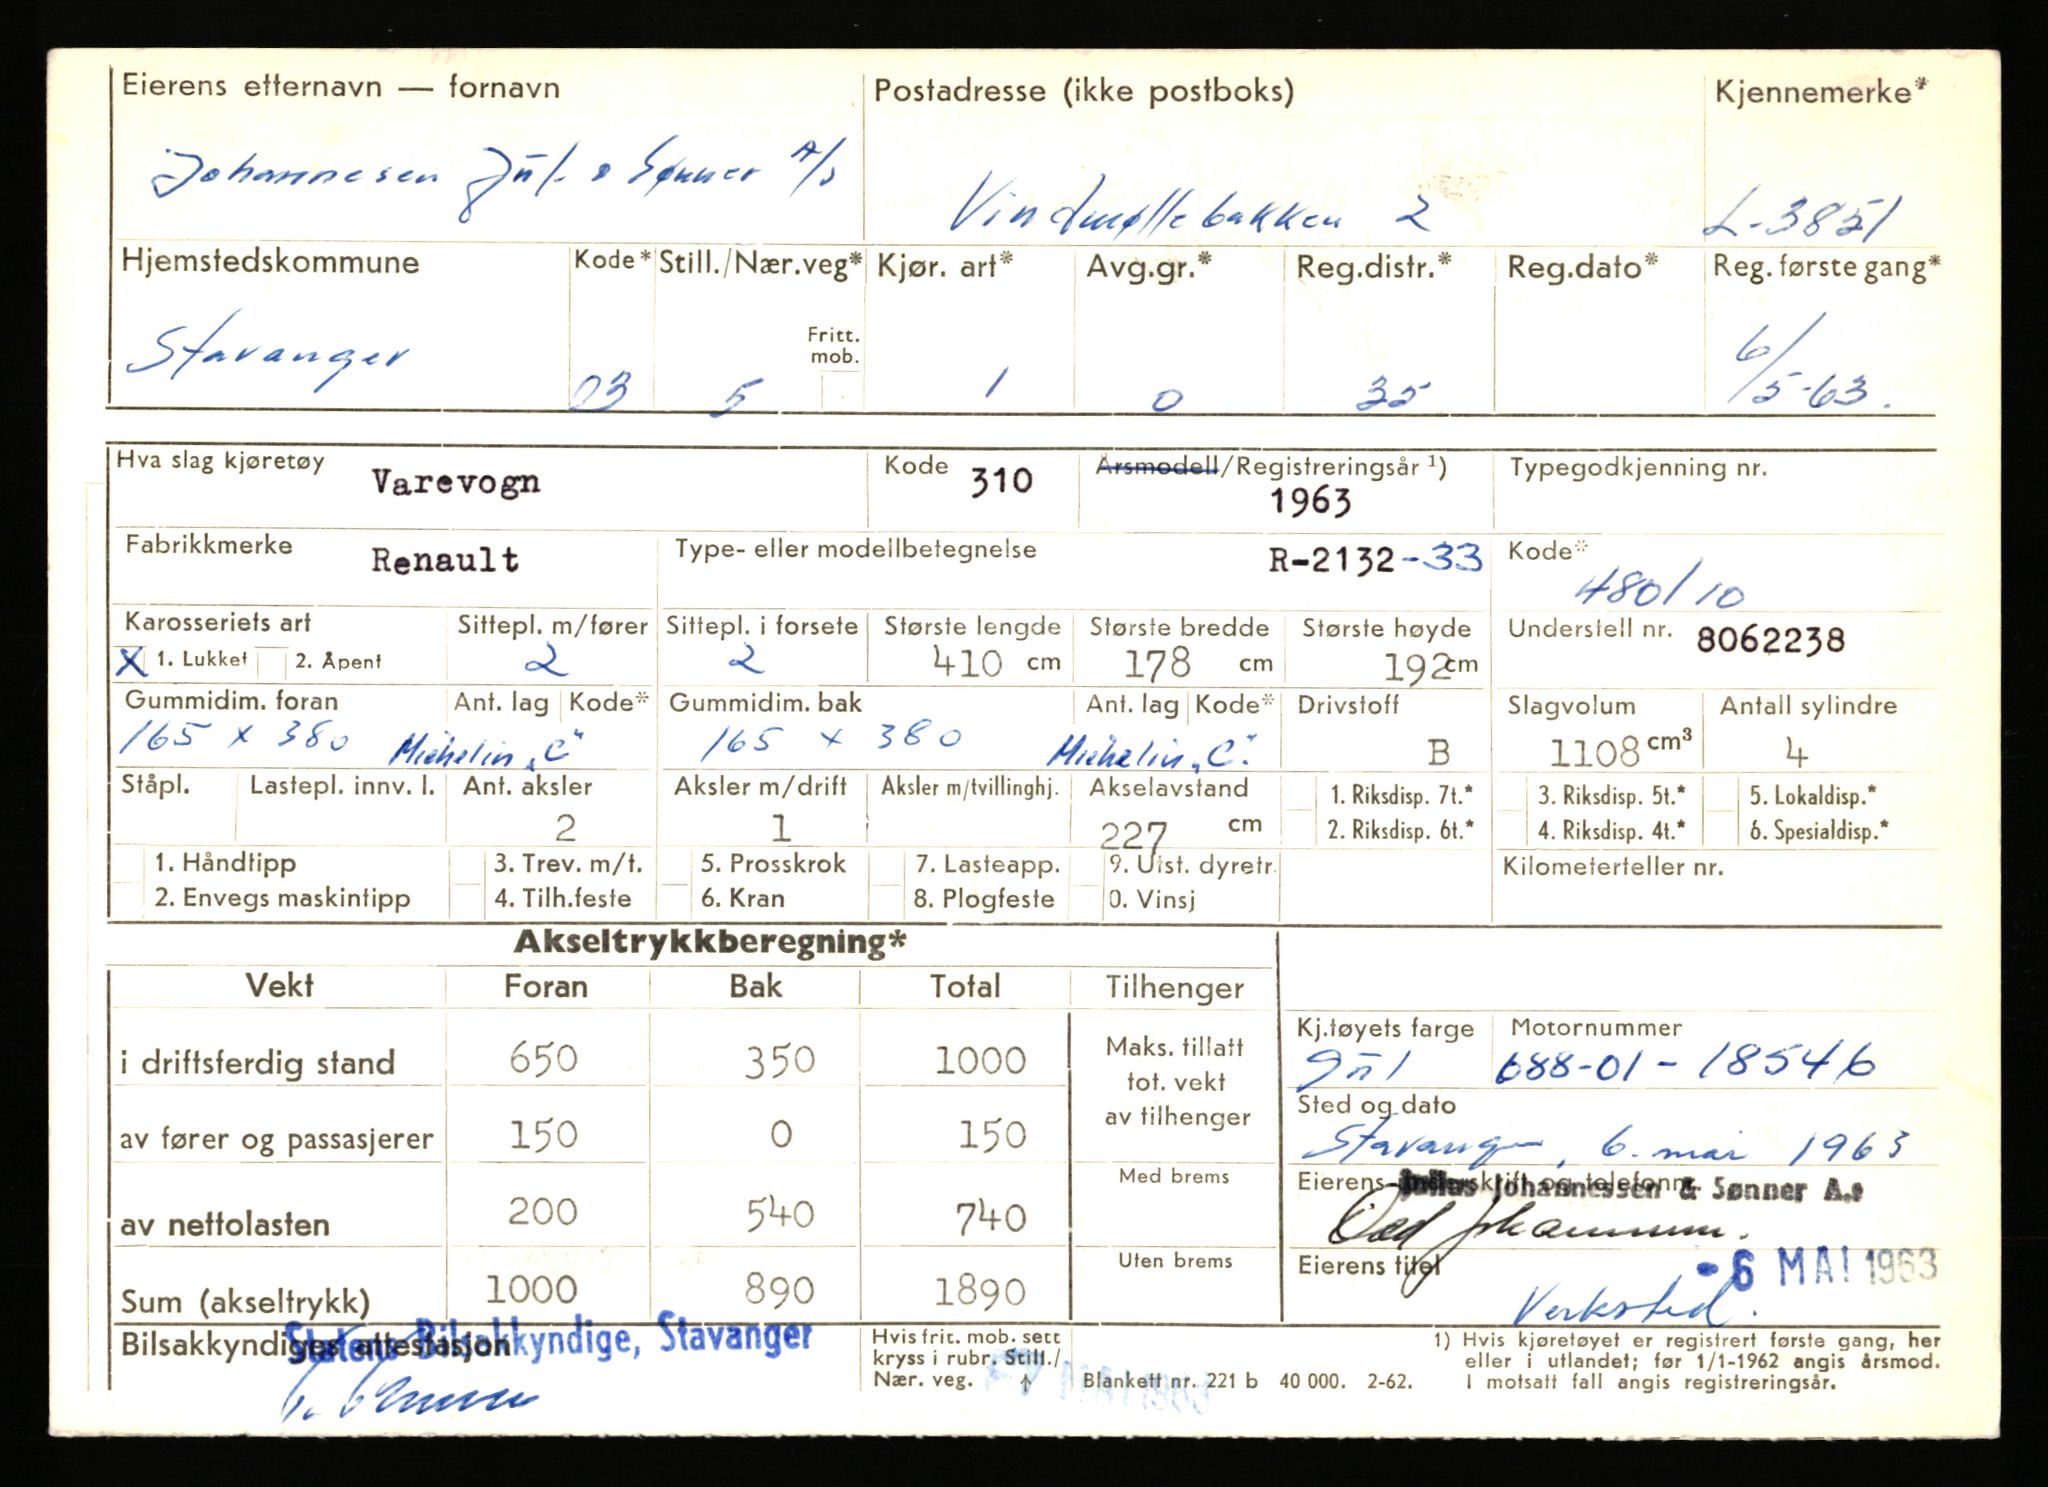 Eierens etternavn — fornavn Postadresse (ikke postboks) Kjennemerke*
Johannesen Jul. & Sønner A/S Vindmøllebakken 2 L-3851
Hjemstedskommune Kode* Still./Nær.veg* Kjør. art* Avg.gr.* Reg.distr.* Reg.dato* Reg. første gang*
Fritt. mob.
Stavanger 03 5 1 0 35 6/5-63.
Hva slag kjøretøy Varevogn Kode 310 Årsmodell/Registreringsår 1) 1963 Typegodkjenning nr.
Fabrikkmerke Renault Type- eller modellbetegnelse R-2132-33 Kode* 480/10
Karosseriets art Sittepl. m/fører Sittepl. i forsete Største lengde Største bredde Største høyde Understell nr. 8062238
X 1. Lukket 2. Åpent 2 2 410 cm 178 cm 192 cm
Gummidim. foran Ant. lag Kode* Gummidim. bak Ant. lag Kode* Drivstoff Slagvolum Antall sylindre
165 x 380 Michelin „C" 165 x 380 Michelin „C". B 1108 cm³ 4
Ståpl. Lastepl. innv. l. Ant. aksler Aksler m/drift Aksler m/tvillinghj. Akselavstand 1. Riksdisp. 7t.* 3. Riksdisp. 5t.* 5. Lokaldisp.*
2 1 227 cm 2. Riksdisp. 6t.* 4. Riksdisp. 4t.* 6. Spesialdisp.*
1. Håndtipp 3. Trev. m/t. 5. Prosskrok 7. Lasteapp. 9. Utst. dyretr. Kilometerteller nr.
2. Envegs maskintipp 4. Tilh.feste 6. Kran 8. Plogfeste 0. Vinsj
Akseltrykkberegning*
Vekt Foran Bak Total Tilhenger
i driftsferdig stand 650 350 1000 Maks. tillatt tot. vekt av tilhenger
av fører og passasjerer 150 0 150
Med brems
av nettolasten 200 540 740
Uten brems
Sum (akseltrykk) 1000 890 1890
Kj.tøyets farge Motornummer
gul 688-01-18546
Sted og dato
Stavanger, 6. mai 1963
Eierens underskrift og telefonnr.
Julius Johannessen & Sønner A.s
Odd Johannessen.
Eierens titel
-6 MAI 1963
Verksted.
Bilsakkyndiges attestasjon
Statens Bilsakkyndige, Stavanger
Hvis frit. mob. sett
kryss i rubr. Still./
Nær. veg. ↑
MAI 1963
Blankett nr. 221 b 40 000. 2-62.
1) Hvis kjøretøyet er registrert første gang, her
eller i utlandet; før 1/1-1962 angis årsmod.
I motsatt fall angis registreringsår.